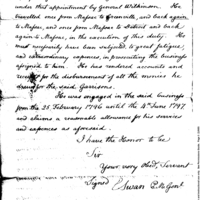 under that appointment by General Wilkinson. He
travelled once from Massac to Greenville, and back again
to Massac, and once from Massac to Detroit and back
again to Massac, in the execution of this duty. He
must necessarily have been subjected to great fatigue,
and extraordinary expences, in prosecuting the business
assigned to him. He has rendered accounts and
for the disbursement of all the monies he
drew for the said Garrisons.
He was engaged in the said business
from the 25 February 1796 until the 4th June 1797.
and claims a reasonable allowance for his services
and expences as aforesaid.
I have the Honor to be
Sir
Your very Obed. Servant
Signed Swan P. M. Genl.